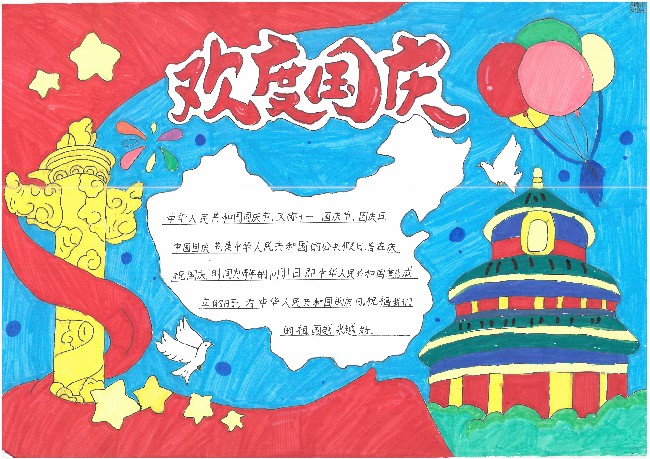 欢度国庆
中华人民共和国国庆节,又称十一 国庆节,国庆日
中国国庆节是中华人民共和国的公共假日,旨在庆
祝国庆,时间为每年的10月1日,即中华人民共和国
立的 中华人民共和国 祝福我们
的祖国越来越好.